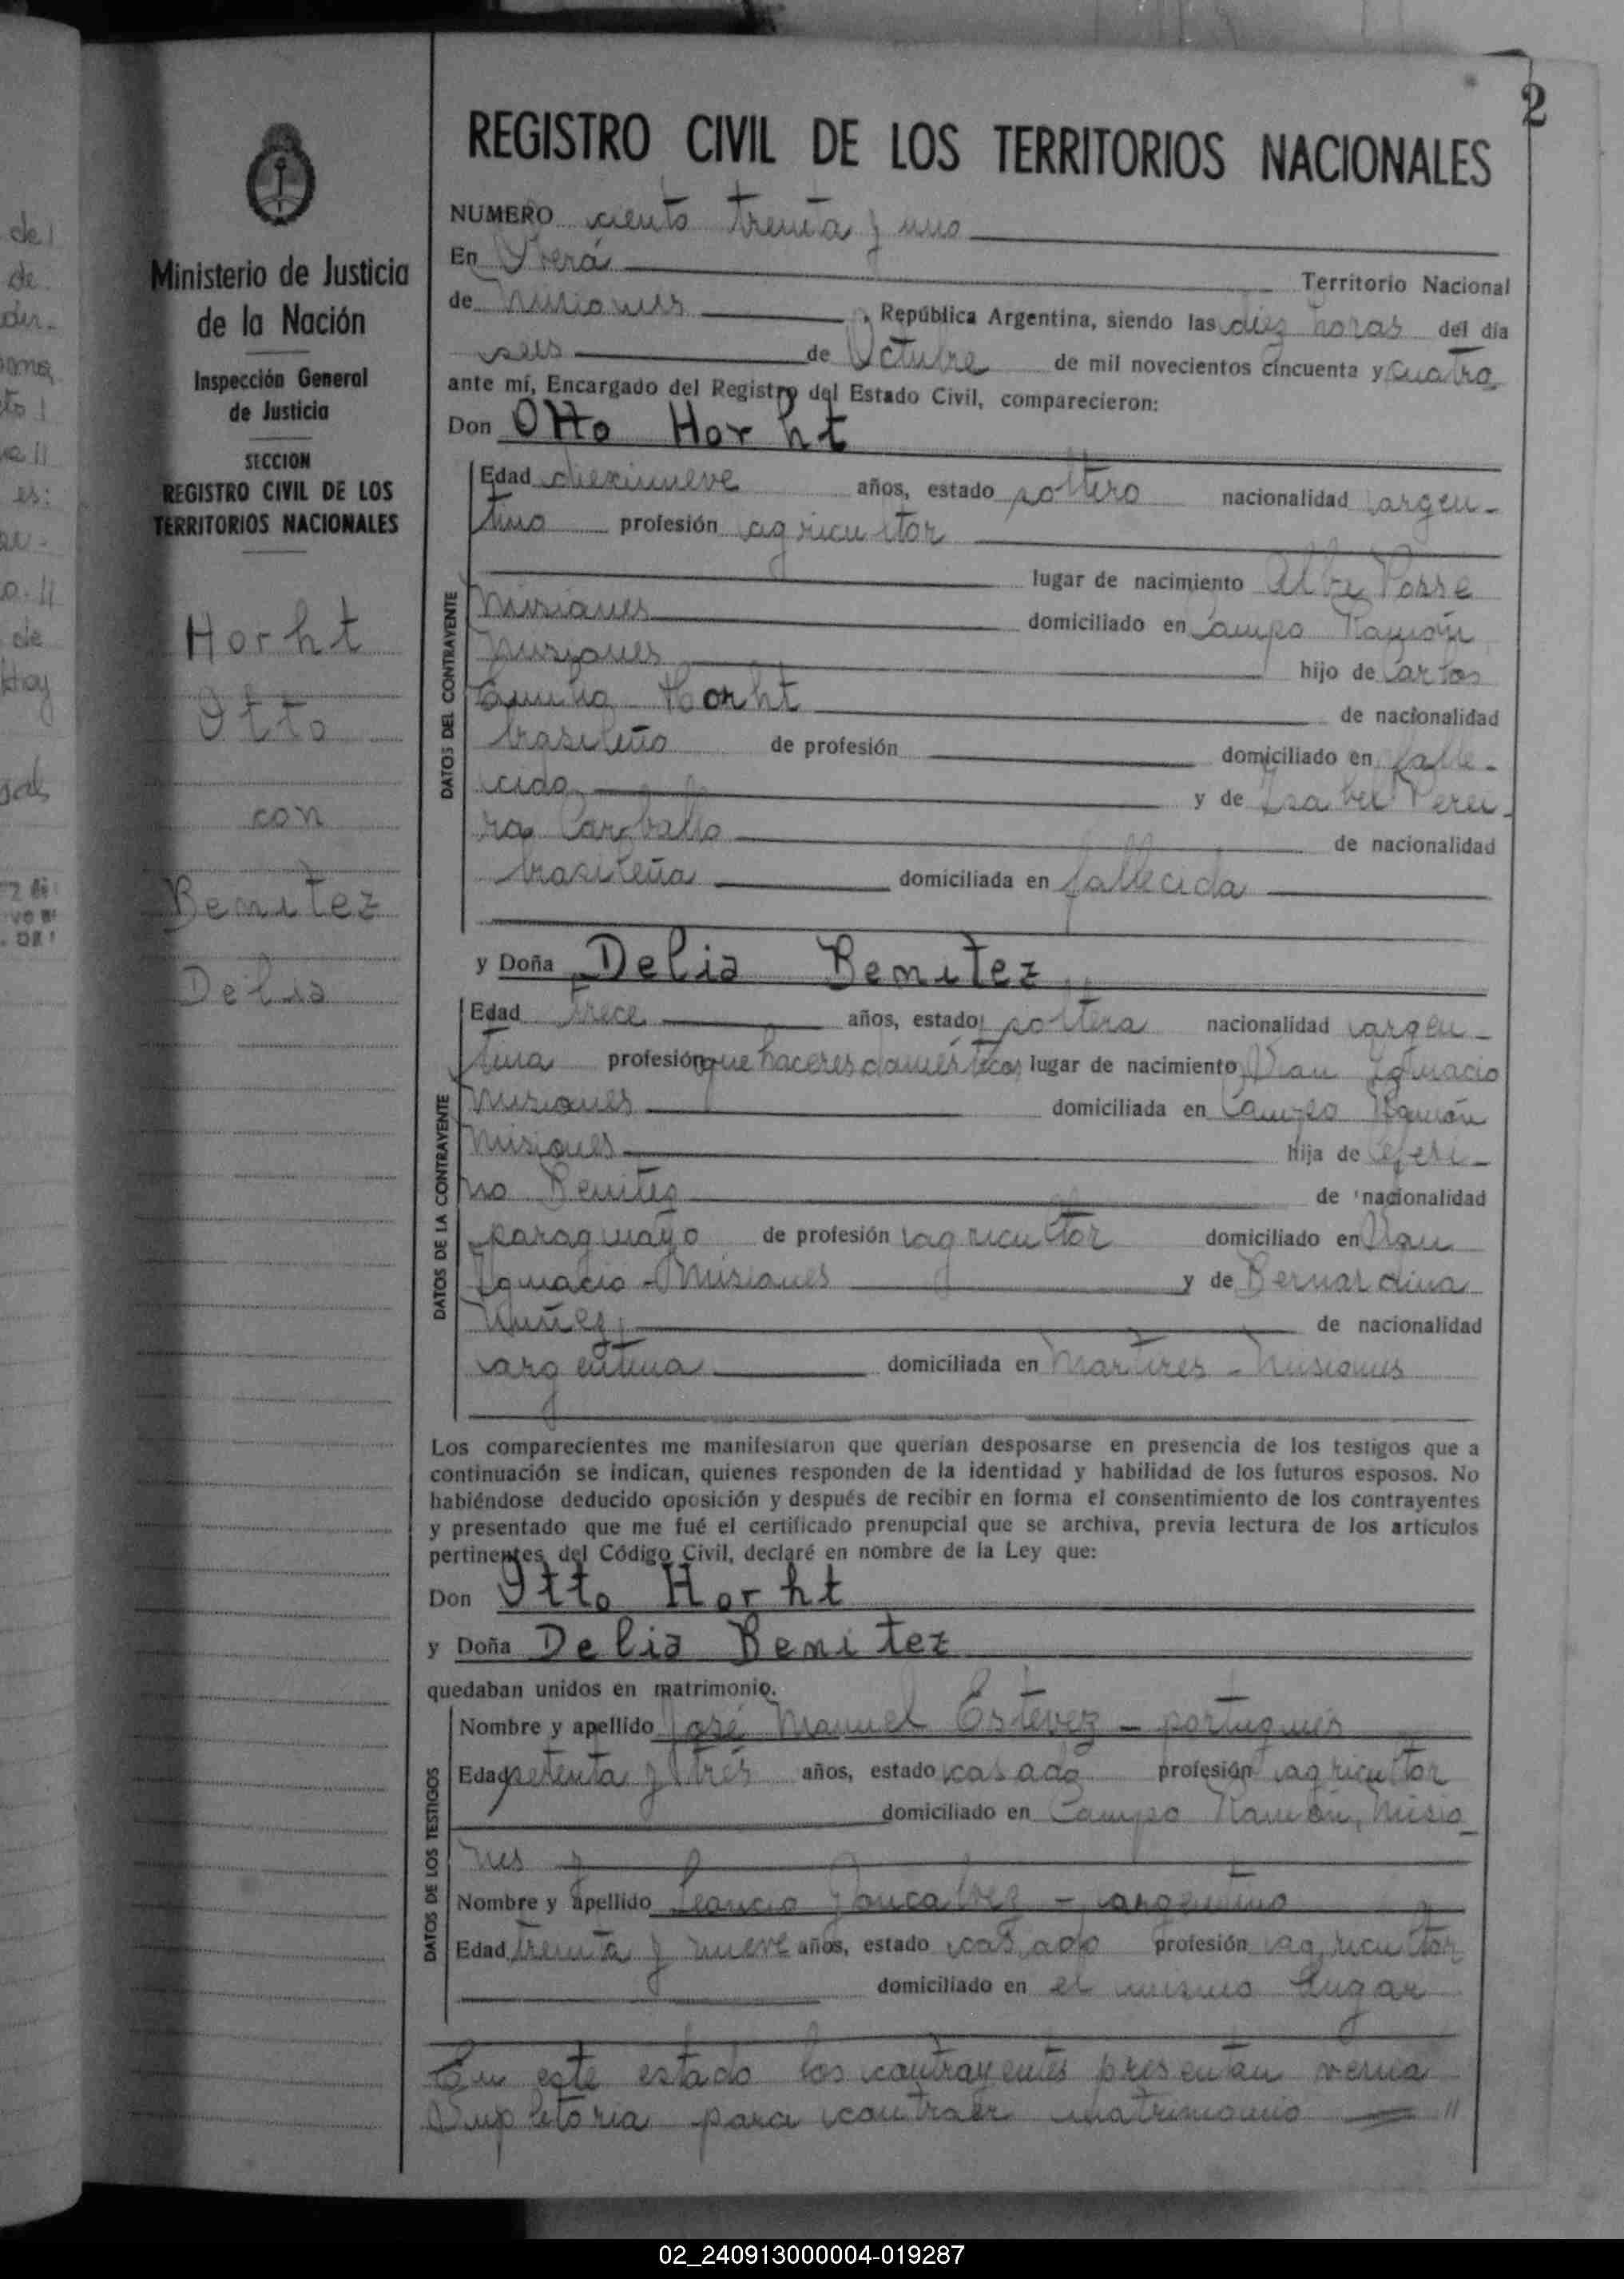 2
REGISTRO CIVIL DE LOS TERRITORIOS NACIONALES
Ministerio de Justicia
de la Nación
Inspección General
de Justicia
SECCION
REGISTRO CIVIL DE LOS
TERRITORIOS NACIONALES
Horht
Otto
con
Benitez
Delia
NUMERO ciento treinta y uno
En Oberá Territorio Nacional
de Misiones, República Argentina, siendo las diez horas del día
seis de Octubre de mil novecientos cincuenta y cuatro
ante mí, Encargado del Registro del Estado Civil, comparecieron:
Don Otto Horht
DATOS DEL CONTRAYENTE
Edad diecinueve años, estado soltero nacionalidad argen-
tino profesión agricultor
lugar de nacimiento Alba Posse
Misiones domiciliado en Campo Ramón
Misiones hijo de Carlos
Horht de nacionalidad
brasileño de profesión domiciliado en falle-
cido y de Isabel Perei-
ra Carballo de nacionalidad
brasileña domiciliada en fallecida
y Doña Delia Benitez
DATOS DE LA CONTRAYENTE
Edad trece años, estado soltera nacionalidad argen-
tina profesión quehaceres domésticos lugar de nacimiento San Ignacio
Misiones domiciliada en Campo Ramón
Misiones hija de Ceferi-
no Benitez de nacionalidad
paraguayo de profesión agricultor domiciliado en San
Ignacio - Misiones y de Bernardina
Nuñez, de nacionalidad
argentina domiciliada en Martires - Misiones
Los comparecientes me manifestaron que querían desposarse en presencia de los testigos que a
continuación se indican, quienes responden de la identidad y habilidad de los futuros esposos. No
habiéndose deducido oposición y después de recibir en forma el consentimiento de los contrayentes
y presentado que me fué el certificado prenupcial que se archiva, previa lectura de los artículos
pertinentes del Código Civil, declaré en nombre de la Ley que:
Don Otto Horht
y Doña Delia Benitez
quedaban unidos en matrimonio.
DATOS DE LOS TESTIGOS
Nombre y apellido José Manuel Estevez - portugues
Edad setenta y tres años, estado casado profesión agricultor
domiciliado en Campo Ramón, Misio-
nes y
Nombre y apellido Leancio Goncalvez - argentino
Edad treinta y nueve años, estado casado profesión agricultor
domiciliado en el mismo lugar
En este estado los contrayentes presentan venia
supletoria para contraer matrimonio = //
02_240913000004-019287